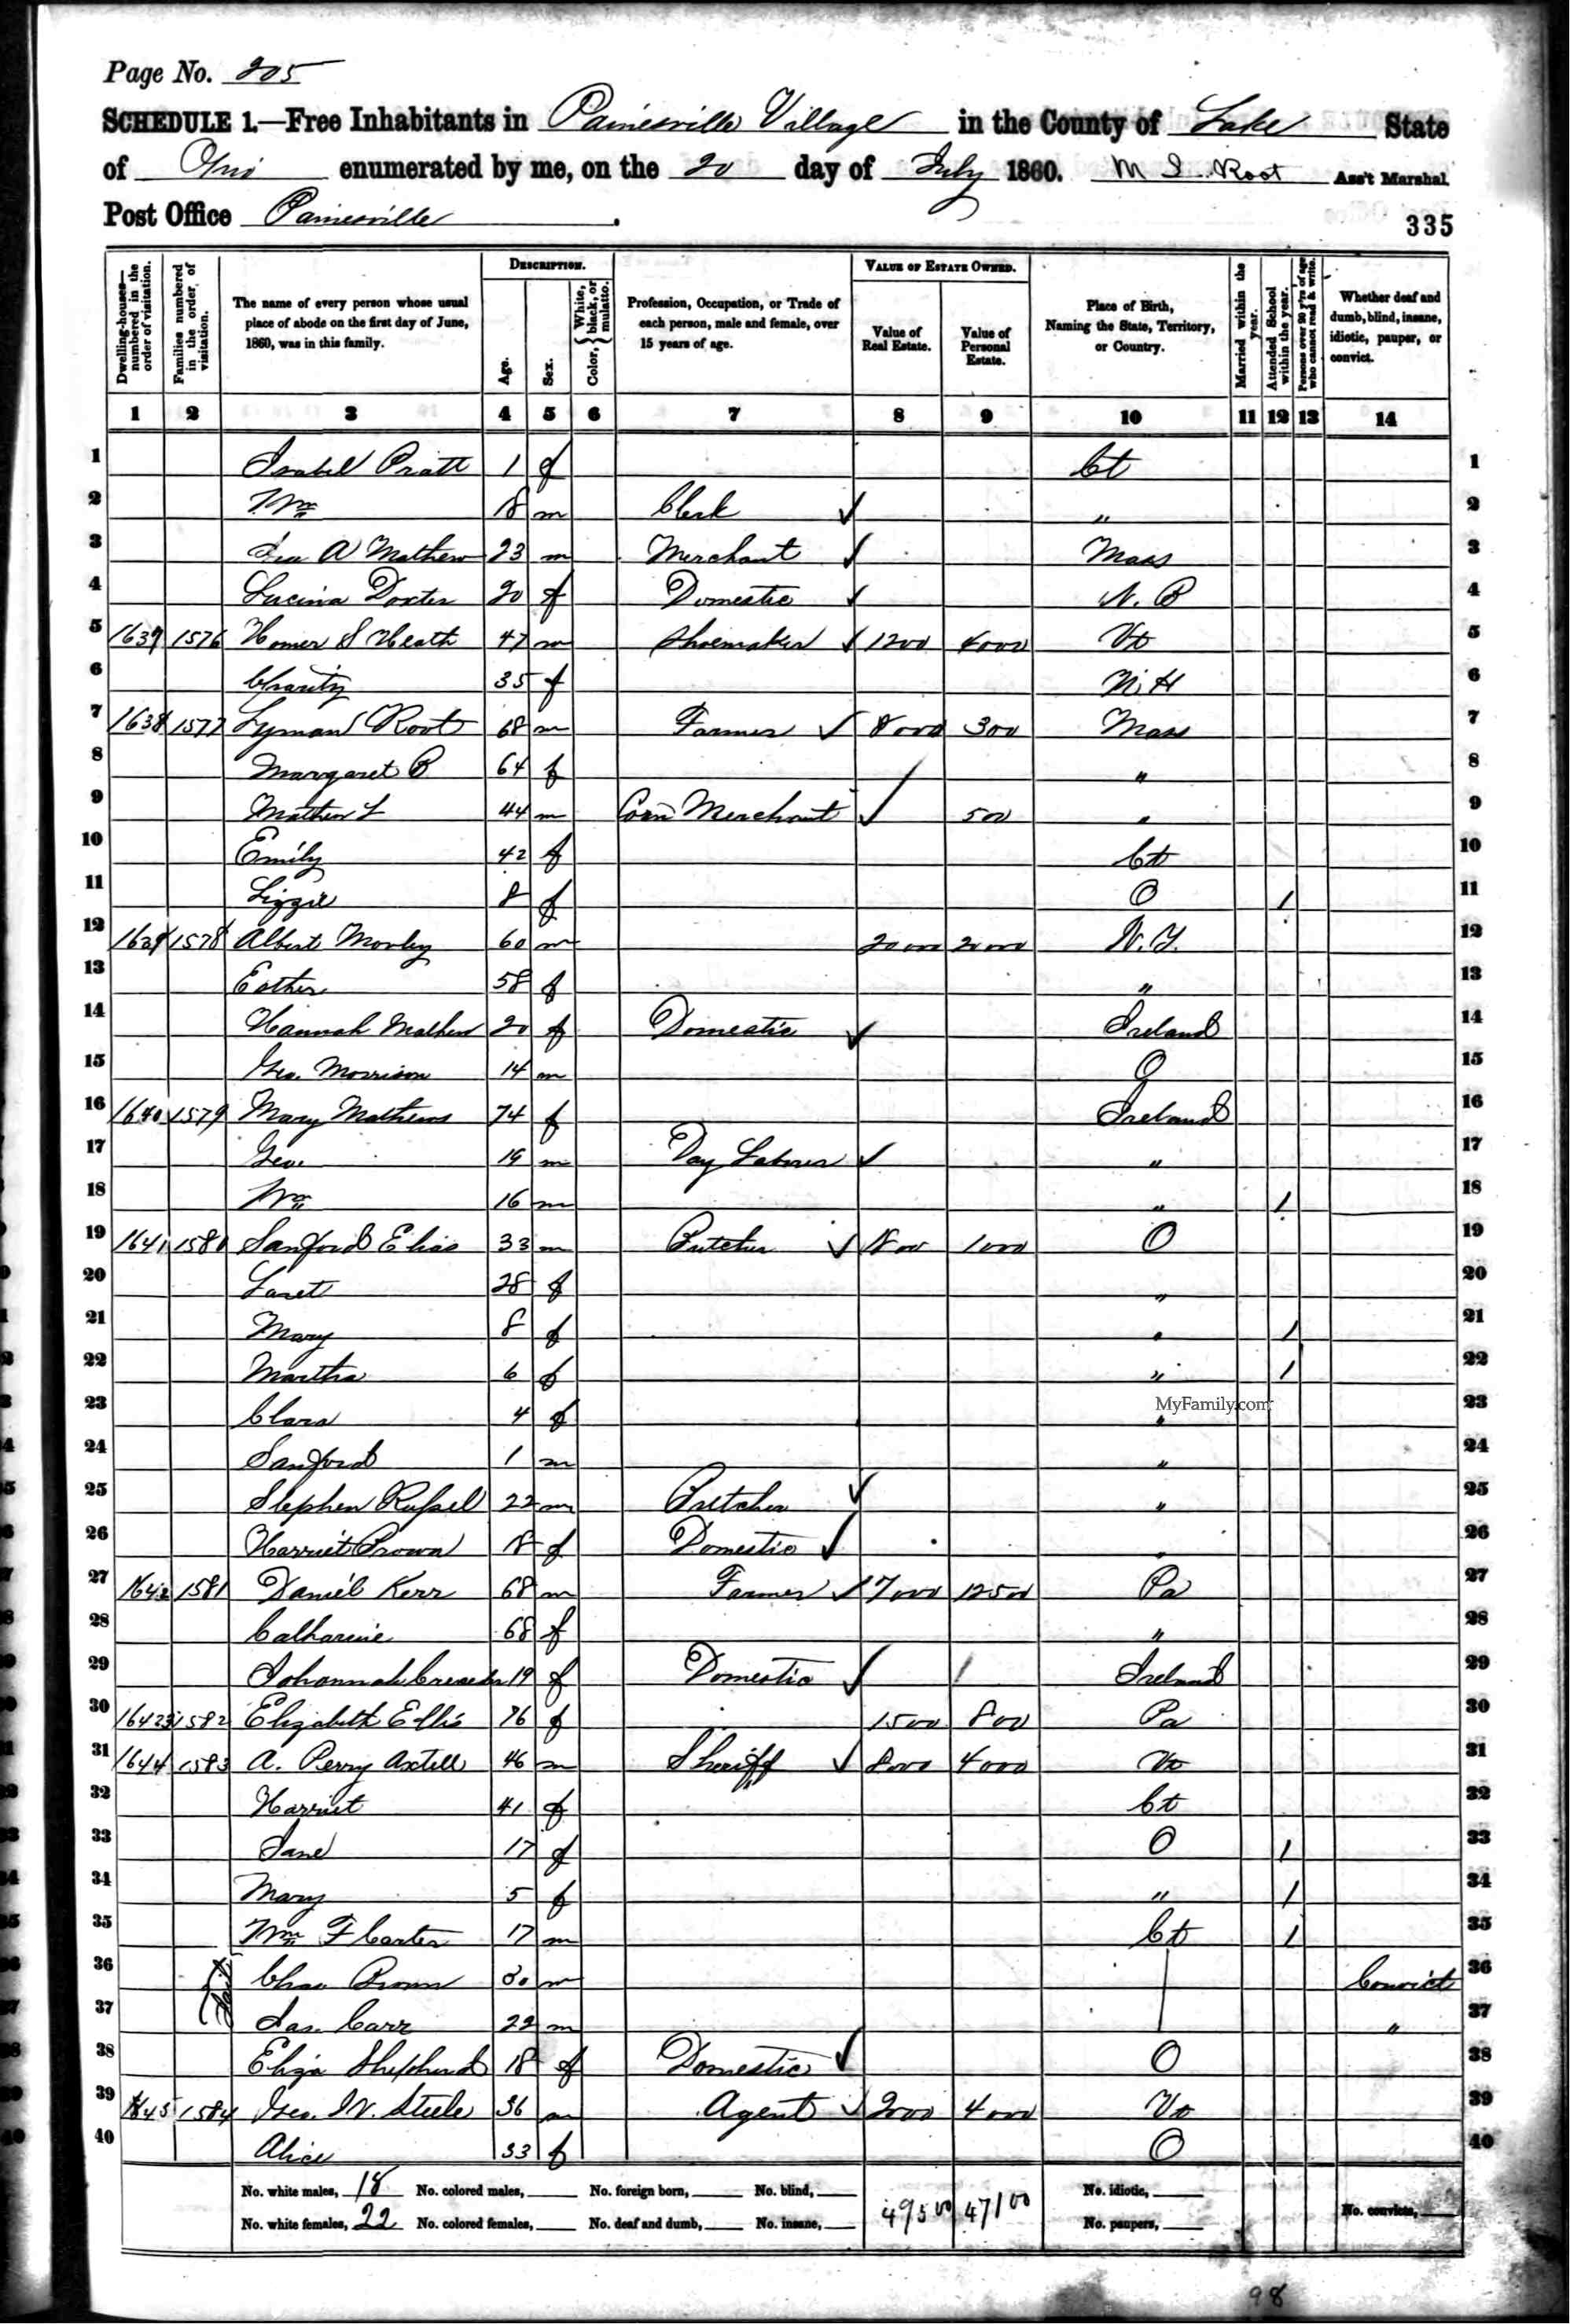 Page No. 205
SCHEDULE 1.—Free Inhabitants in Painesville Village in the County of Lake State
of Ohio enumerated by me, on the 20 day of July 1860. M L Root Ass't Marshal.
Post Office Painesville.
335
Dwelling-houses—numbered in the order of visitation.
Families numbered in the order of visitation.
The name of every person whose usual place of abode on the first day of June, 1860, was in this family.
DESCRIPTION.
Age.
Sex.
Color, { White, black, or mulatto. }
Profession, Occupation, or Trade of each person, male and female, over 15 years of age.
VALUE OF ESTATE OWNED.
Value of Real Estate.
Value of Personal Estate.
Place of Birth, Naming the State, Territory, or Country.
Married within the year.
Attended School within the year.
Persons over 20 y'rs of age who cannot read & write.
Whether deaf and dumb, blind, insane, idiotic, pauper, or convict.
1 2 3 4 5 6 7 8 9 10 11 12 13 14
1 Isabel Pratt 1 f Ct 1
2 Wm 18 m Clerk ✓ " 2
3 A Mathew 23 m Merchant ✓ Mass 3
4 Lucina Doxter 20 f Domestic ✓ N. B 4
5 1637 1576 Homer S Heath 47 m Shoemaker ✓ 1200 4000 Vt 5
6 Charity 35 f N. H 6
7 1638 1577 Lyman Root 68 m Farmer ✓ 8000 300 Mass 7
8 Margaret B 64 f " 8
9 Mathew L 44 m Merchant ✓ 500 " 9
10 Emily 42 f Ct 10
11 Lizzie 8 f O 1 11
12 1639 1578 Albert Morley 60 m 20000 20000 N. Y. 12
13 Esther 58 f " 13
14 Hannah Mathew 20 f Domestic ✓ Ireland 14
15 Geo. Morrison 14 m O 15
16 1640 1579 Mary Mathews 74 f Ireland 16
17 Geo. 19 m Day Laborer ✓ " 17
18 Wm 16 m " 1 18
19 1641 1580 Sanford Elias 33 m Butcher ✓ 1800 1000 O 19
20 28 f " 20
21 Mary 8 f " 1 21
22 Martha 6 f " 1 22
23 Clara 4 f " 23
MyFamily.com
24 Sanford 1 m " 24
25 Stephen Russel 22 m Butcher ✓ " 25
26 Harriet Brown 18 f Domestic ✓ " 26
27 1642 1581 Daniel Kerr 68 m Farmer ✓ 7000 12500 Pa 27
28 Catharine 68 f " 28
29 Johannah 19 f Domestic ✓ Ireland 29
30 1643 1582 Elizabeth Ellis 76 f 1500 800 Pa 30
31 1644 1583 A. Perry Axtell 46 m Sheriff ✓ 8000 4000 Vt 31
32 Harriet 41 f Ct 32
33 Jane 17 f O 1 33
34 Mary 5 f " 1 34
35 Wm F Carter 17 m Ct 1 35
36 Jail Chas Brown 30 m Convict 36
37 Jas. Carr 22 m " 37
38 Eliza Shepherd 18 f Domestic ✓ O 38
39 1645 1584 Geo. W. Steele 36 m Agent ✓ 2000 4000 Vt 39
40 Alice 33 f O 40
No. white males, 18 No. colored males, No. foreign born, No. blind, 49500 47100 No. idiotic,
No. white females, 22 No. colored females, No. deaf and dumb, No. insane, No. paupers, No. convicts,
98